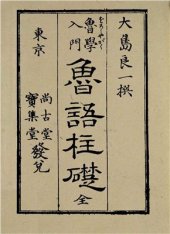 大島良一撰
魯學入門
魯語柱礎 全
東京
尚古堂
寶集堂
發兌